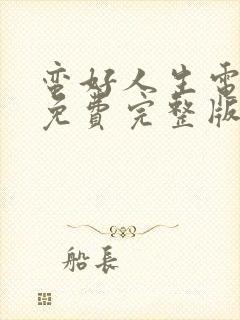 蛮好人生電
免費完整版
船長